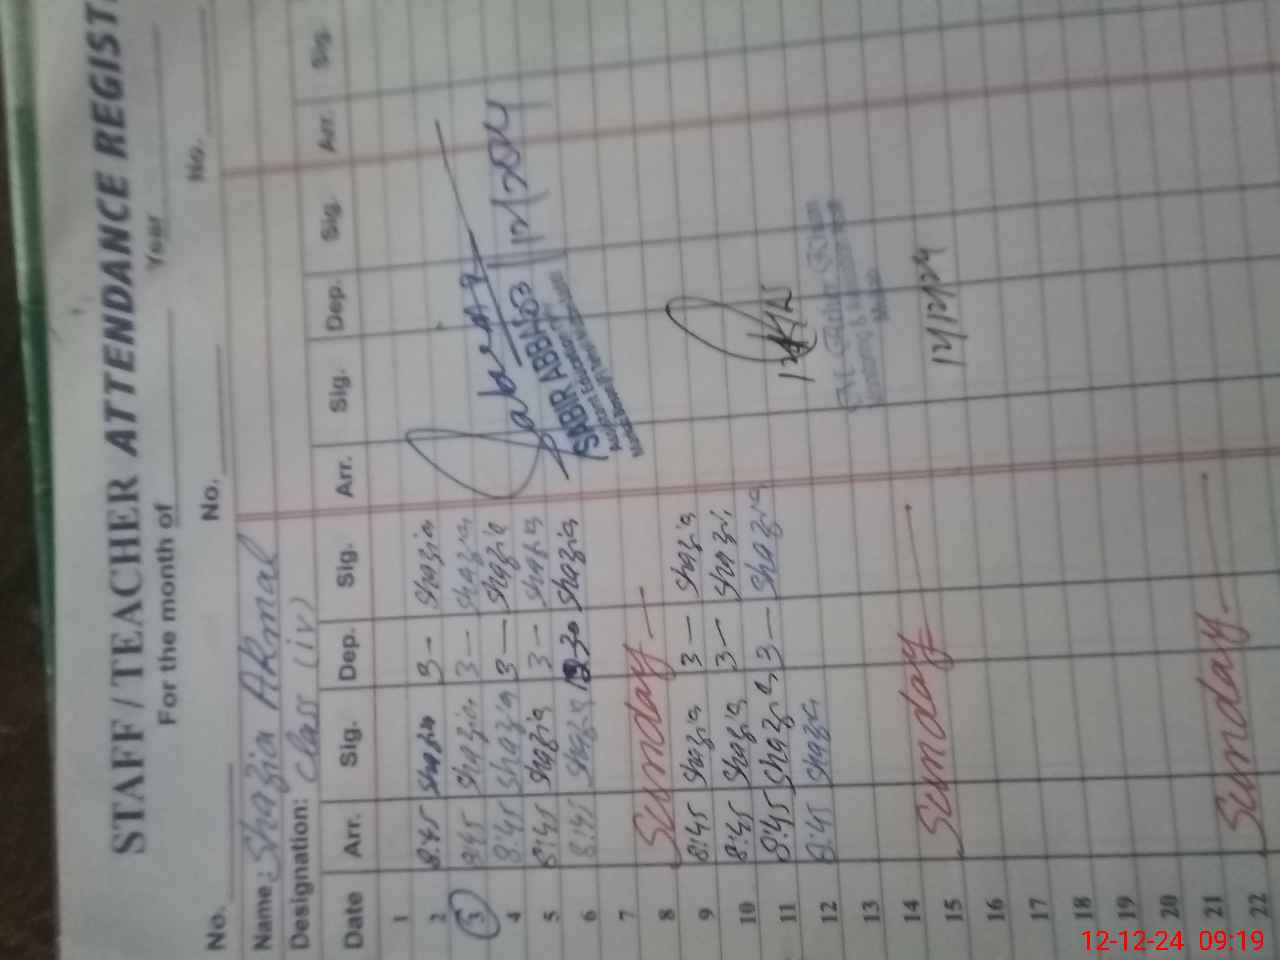 STAFF / TEACHER ATTENDANCE REGIST
For the month of Year
No. No. No.
Name: Shazia Akmal
Designation: Class (iv)
Date Arr. Sig. Dep. Sig. Arr. Sig. Dep. Sig. Arr. Sig.
1
2 8:45 Shazia 3 — Shazia
3 8:45 Shazia 3 — Shazia
4 8:45 Shazia 3 — Shazia
5 8:45 Shazia 3 — Shazia
6 8:45 Shazia 12:30 Shazia
7
8 Sunday
9 8:45 Shazia 3 — Shazia
10 8:45 Shazia 3 — Shazia
11 8:45 Shazia 3 — Shazia
12 8:45 Shazia
13
14
15 Sunday
16
17
18
19
20
21
22 Sunday
SABIR ABBAS
12/2024
12/12/24
12-12-24 09:19